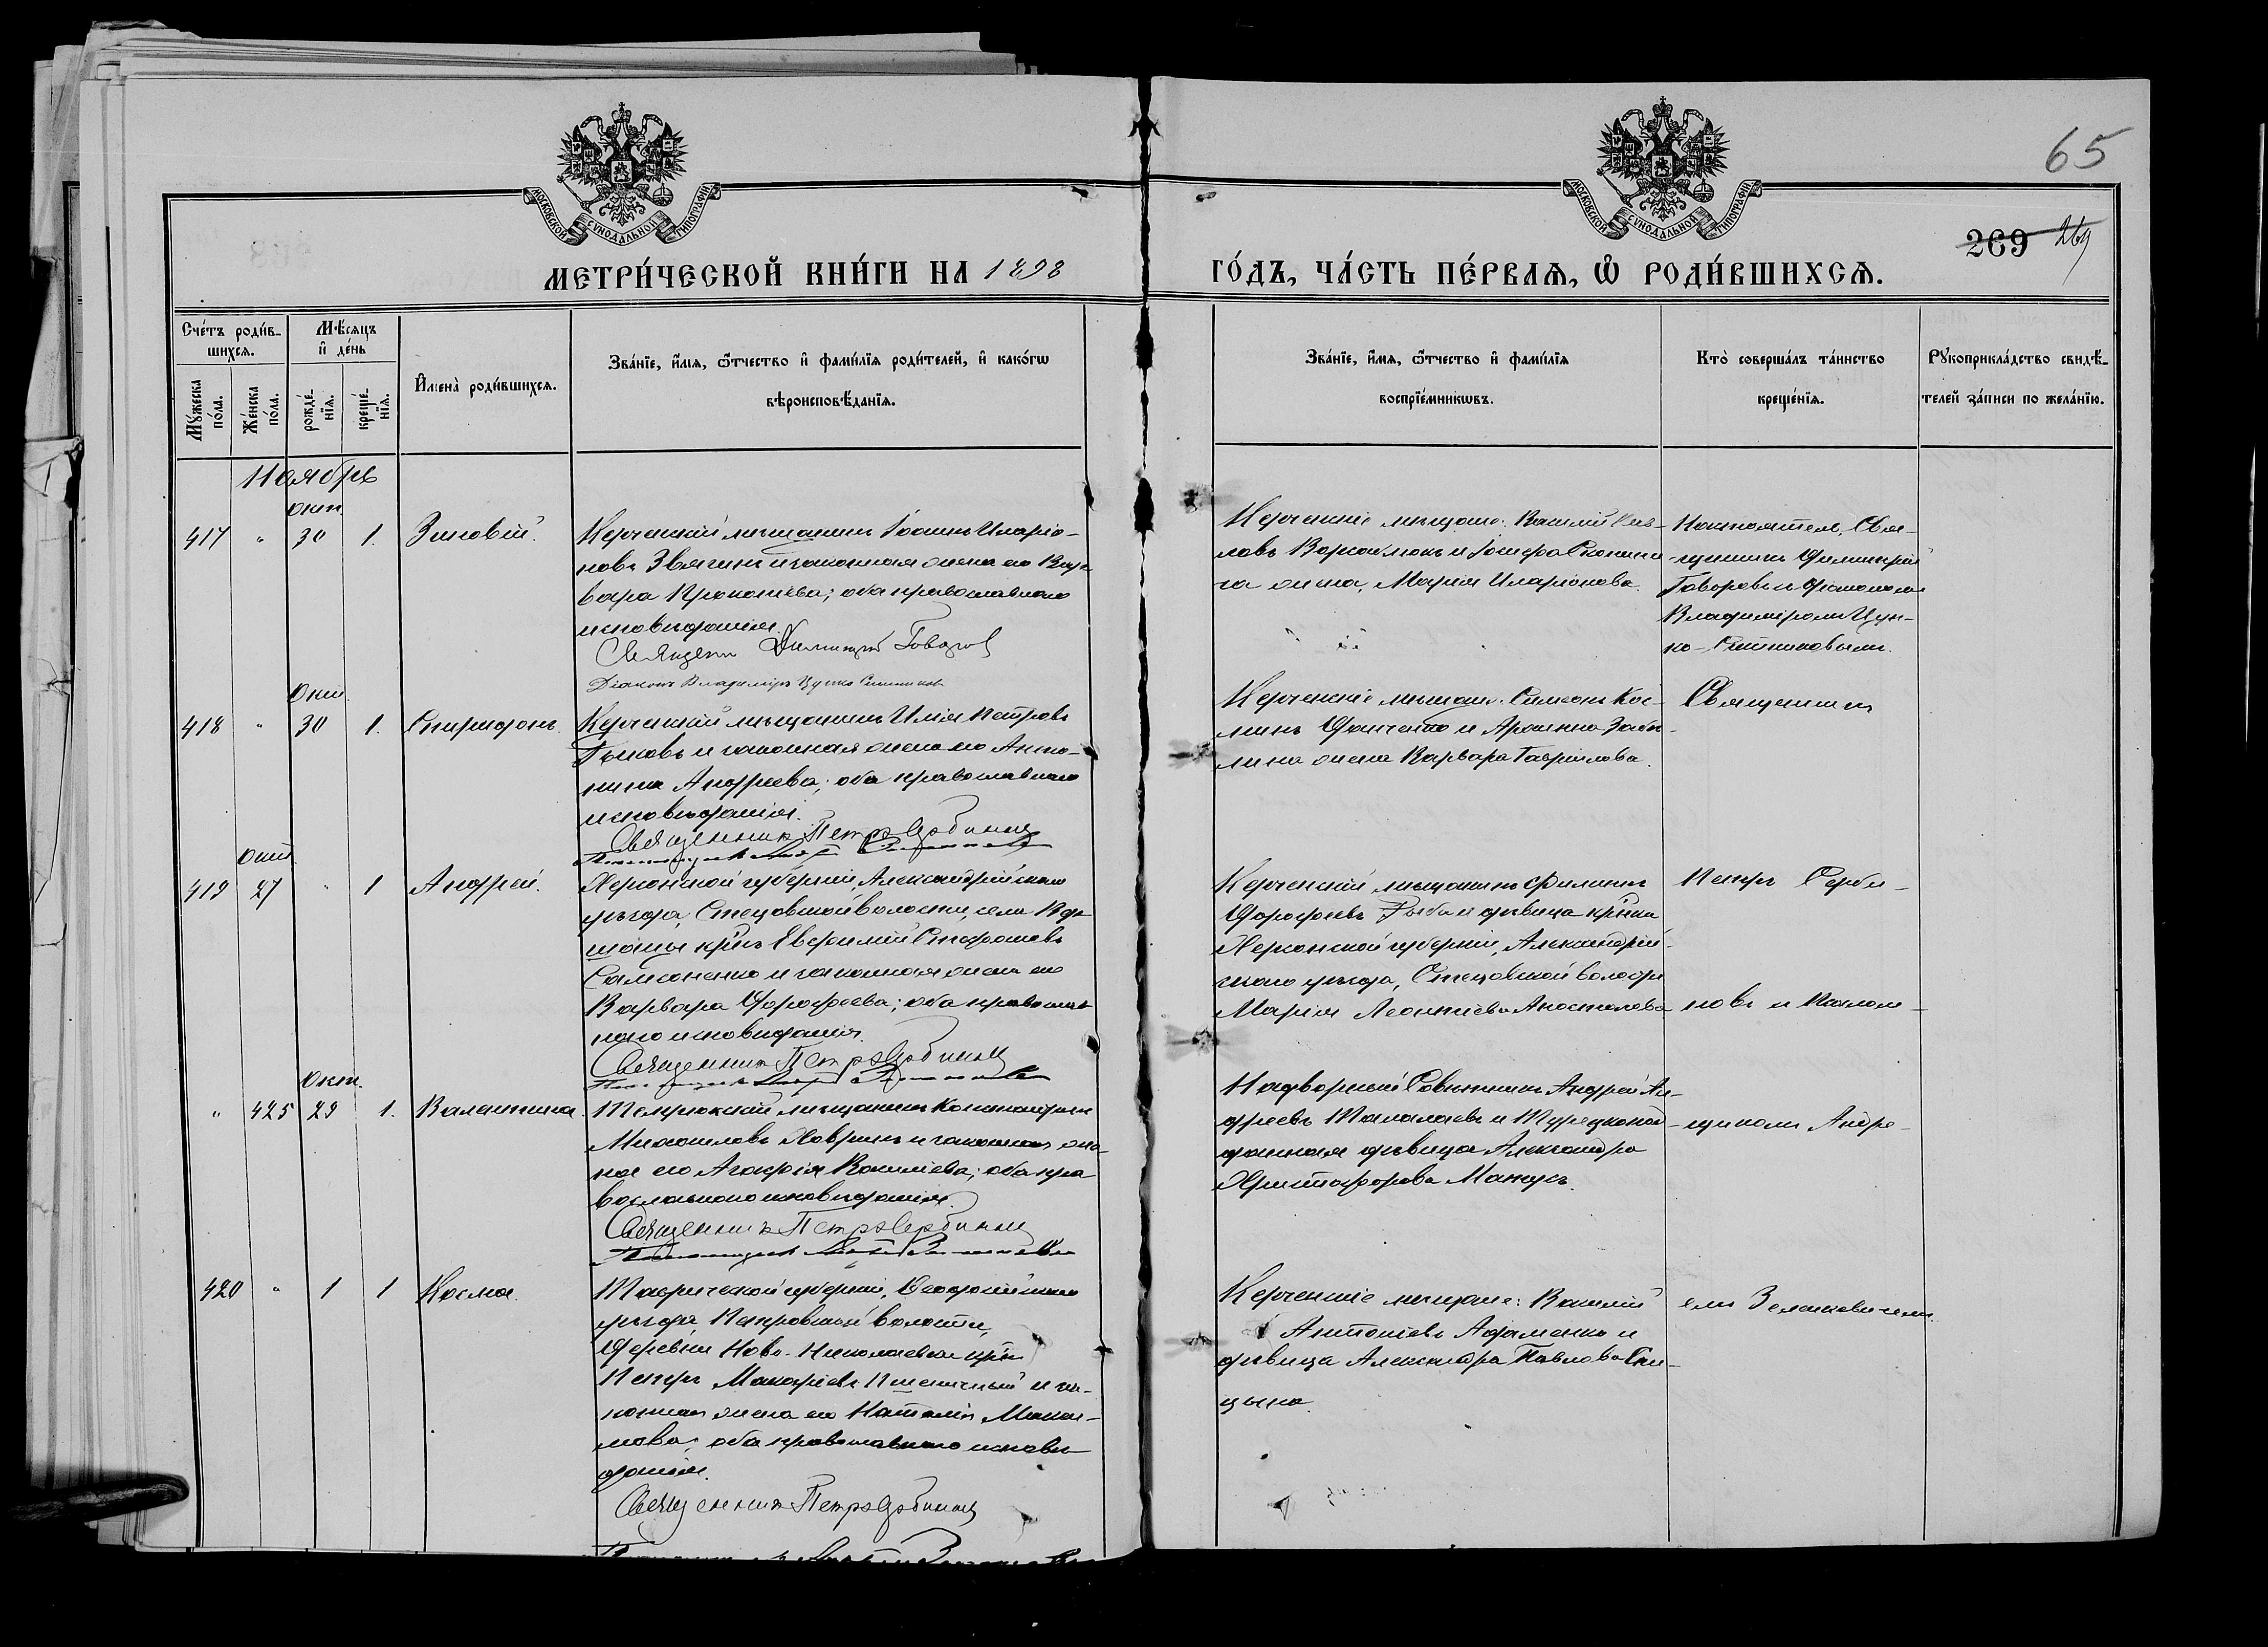 65
МОСКОВСКОЙ СѴНОДАЛЬНОЙ ТИПОГРАФІИ
МОСКОВСКОЙ СѴНОДАЛЬНОЙ ТИПОГРАФІИ
269 269
МЕТРИ́ЧЕСКОЙ КНИ́ГИ НА 1898
ГО́ДЪ, ЧА́СТЬ ПЕ́РВАѦ, Ѽ РОДИ́ВШИХСѦ.
Сче́тъ роди́в-
шихсѧ.
Мѣ́сѧцъ
и҆ де́нь
Мꙋ́жеска
по́ла.
Же́нска
по́ла.
рожде́-
нїѧ.
креще́-
нїѧ.
И҆мена̀ роди́вшихсѧ.
Зва́нїе, и҆́мѧ, ѻ҆́тчество и҆ фами́лїѧ роди́телей, и҆ како́гѡ
вѣроисповѣ́данїѧ.
Зва́нїе, и҆́мѧ, ѻ҆́тчество и҆ фами́лїѧ
воспрїе́мникѡвъ.
Кто̀ соверша́лъ та́инство
креще́нїѧ.
Рꙋкоприкла́дство свидѣ́-
телей за́писи по жела́нїю.
Ноябрь
окт.
417 " 30 1. Зиновій.
Керченскій мѣщанинъ Іоаннъ Иларіо-
новъ Звягинъ и законная жена его Вар-
вара Прокопіева; оба православнаго
исповѣданія.
Священникъ Димитрій Говоров
Діаконъ Владиміръ Цушко Ситников
Керченскіе мѣщане: Василій
ловъ и Іосифа
жена, Марія Иларіонова.
Настоятель, Свя-
щенникъ Димитрій
Говоровъ и Діакономъ
Владиміромъ Цуш-
ко-Ситниковымъ.
Окт.
418 " 30 1. Спиридонъ.
Керченскій мѣщанинъ Илія Петровъ
и законная жена его Анто-
нина Андреева; оба православнаго
исповѣданія.
Священникъ Петръ Сербинов
Керченскіе мѣщане: Симеонъ Кос-
минъ и
лина жена Варвара Гавріилова.
Священникъ
окт.
419 27 " 1 Андрей.
Херсонской губерніи, Александрійскаго
уѣзда, Стецовской волости, села
кр-нъ Евфимій Стефановъ
Самоненко и законная жена его
Варвара Дорофеева; оба православ-
наго исповѣданія.
Священникъ Петръ Сербинов
Керченскій мѣщанинъ Филиппъ
Дорофеевъ Рыбак и дѣвица кр-нка
Херсонской губерніи, Александрій-
скаго уѣзда, Стецовской волости
Марія Леонтіева Апостолова
Петръ Серби-
новъ и Псалом-
Окт.
" 425 29 1. Валентина.
Темрюкскій мѣщанинъ Константинъ
Михаиловъ Хавринъ и законная же-
на его Агафія Васильева; оба пра-
вославнаго исповѣданія.
Священникъ Петръ Сербинов
Надворный Совѣтникъ Андрей Ан-
дреевъ и Турецкопод-
данная дѣвица Александра
Христофорова
щикомъ Андре-
420 " 1 1 Косма.
Таврической губерніи, Ѳеодосійскаго
уѣзда Петровской волости,
Деревни Ново-Николаевки кр-нъ
Петръ Макаріевъ Пшеничный и за-
конная жена его Наталія Макси-
мова; оба православнаго исповѣ-
данія.
Священникъ Петръ Сербинов
Керченскіе мѣщане: Василій
Антоніевъ Адаменко и
дѣвица Александра Павлова Спи-
цына.
емъ Зеленкевичемъ.